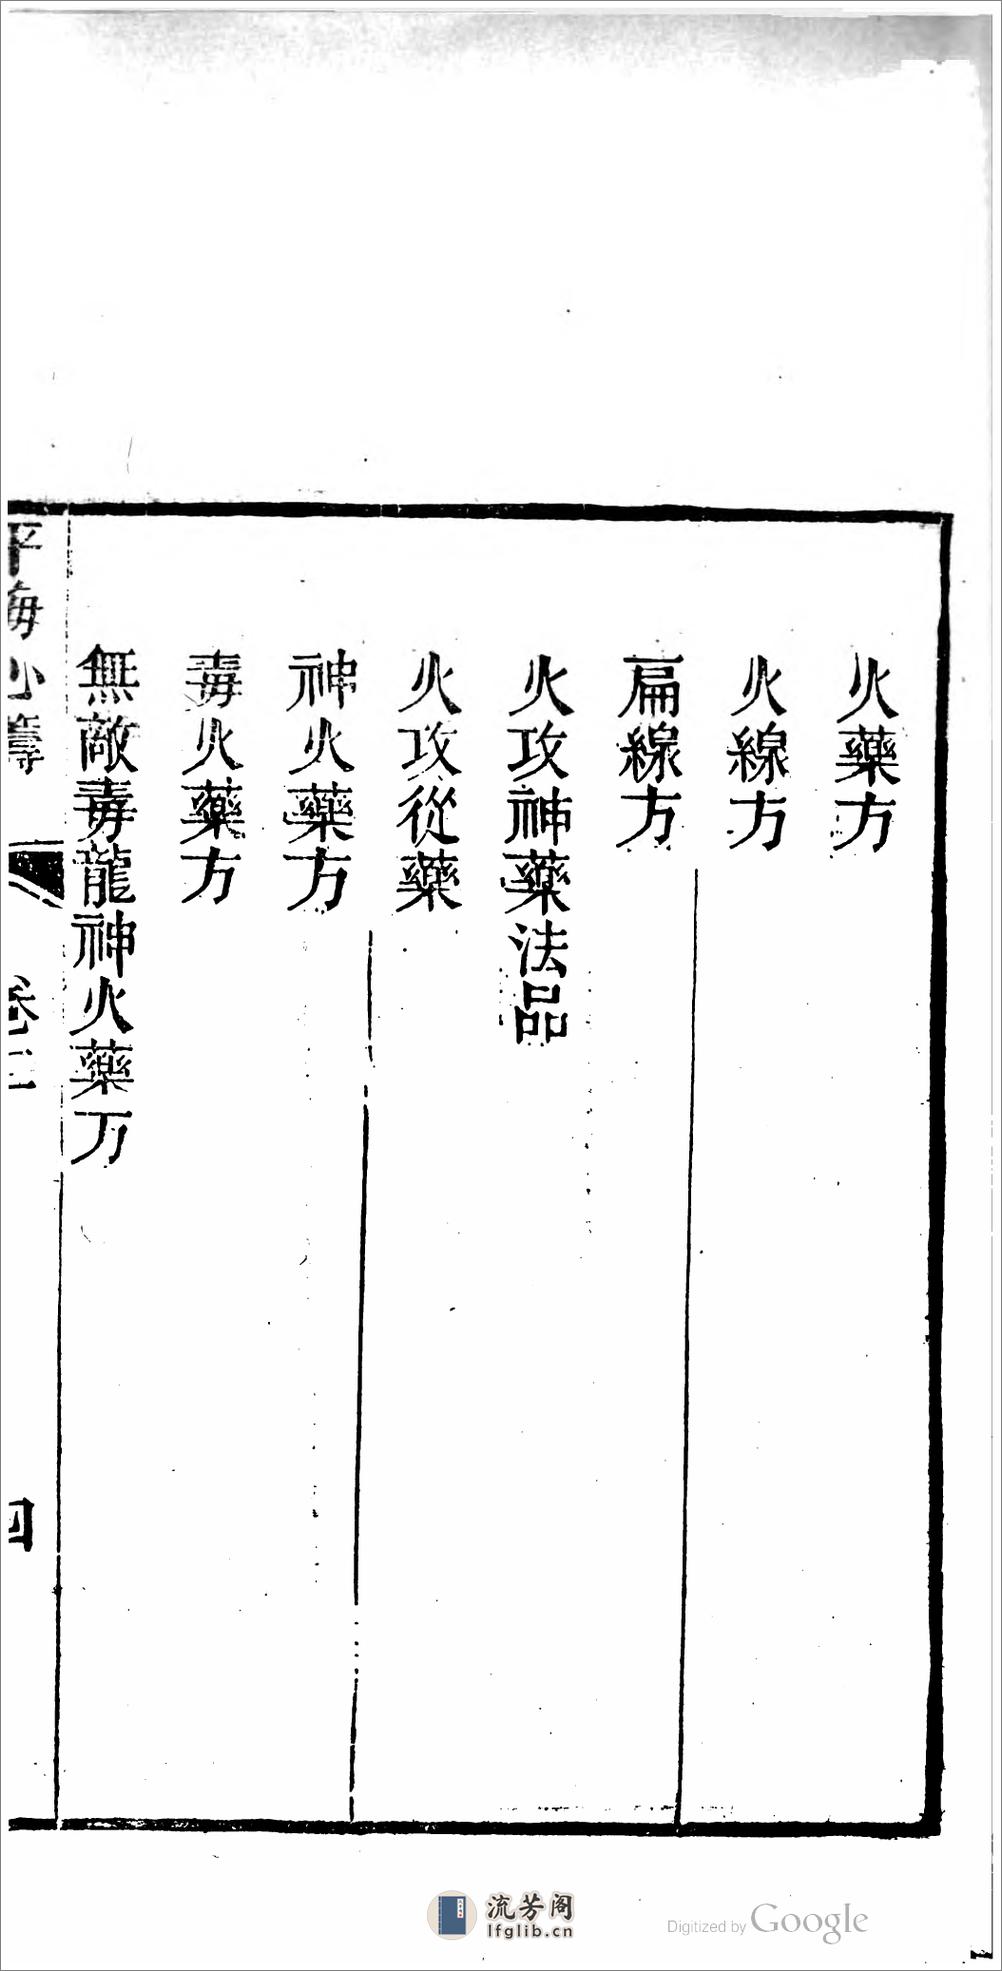 火藥方
火線方
扁線方
火攻神藥法品
火攻從藥
神火藥方
毒火藥方
無敵毒龍神火藥方
平海心籌
卷二
四
流芳阁
lfglib.cn
Digitized by Google